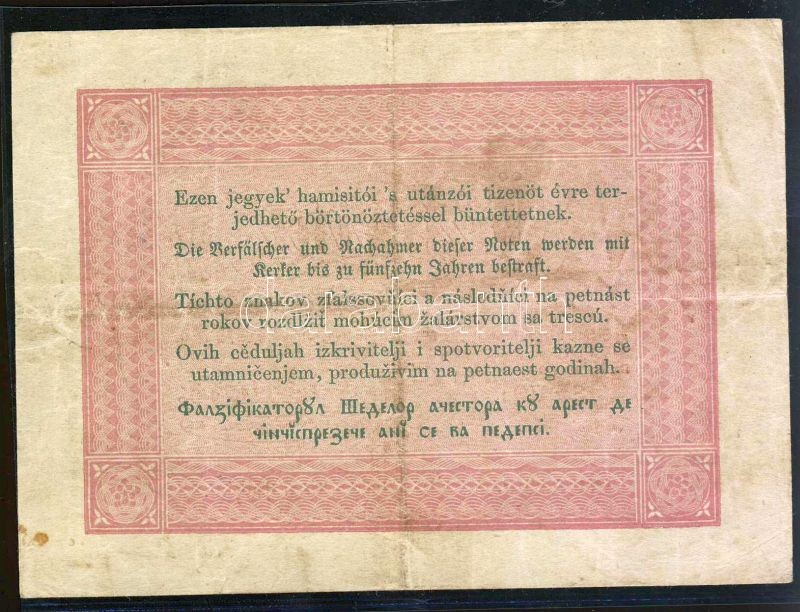 Ezen jegyek' hamisitói 's utánzói tizenöt évre ter-
jedhető börtönöztetéssel büntettetnek.
Die Verfälscher und Nachahmer dieser Noten werden mit
Kerker bis zu fünfzehn Jahren bestraft.
Tíchto znakov zfalssovňíci a následňíci na petnást
rokov rozdlžiť mohúcím žalárstvom sa trescú.
Ovih cěduljah izkrivitelji i spotvoritelji kazne se
utamničenjem, produživim na petnaest godinah.
Фалзіфікаторꙋл Шеделор ачестора кꙋ арест де
чінчіспрезече ані се ва педепсі.